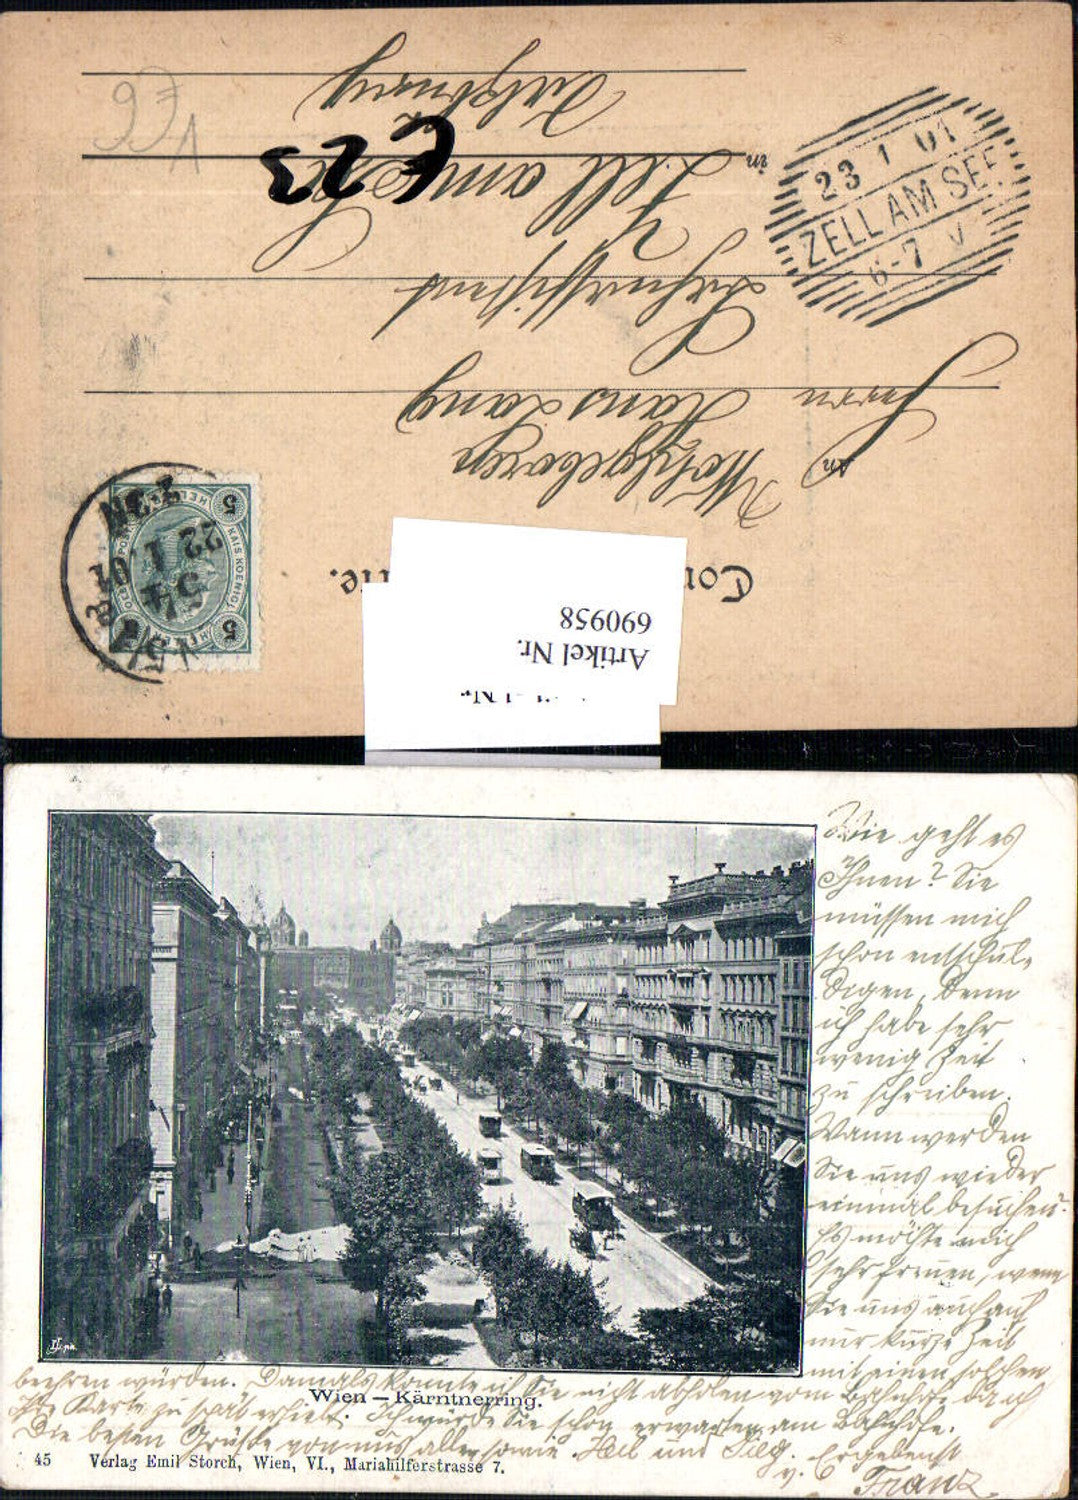 Correspondenz-Karte.
Artikel Nr.
690958
An
Wohlgeboren
Herrn Hans Lang
Lehrassistent
in Zell am See
Salzburg
€ 23
23 1 01
ZELL AM SEE
6-7 V
5 5
KAIS KOENIGL
HELLER
22 1 01
Wie geht es
Ihnen? Sie
müssen mich
schon entschul-
digen, denn
ich habe sehr
wenig Zeit
zu schreiben.
Wann werden
Sie uns wieder
einmal besuchen.
Es möchte mich
sehr freuen, wenn
Sie uns auch auf
nur kurze Zeit
mit einen solchen
beehren würden. Damals konnte ich Sie nicht abholen vom Bahnhofe da ich
Ihre Karte zu spät erhielt. Ich würde Sie schon erwarten am Bahnhofe.
Die besten Grüße von uns allen sowie Heil und Sieg. Ergebenst
v. Franz
Wien – Kärntnerring.
45 Verlag Emil Storch, Wien, VI., Mariahilferstrasse 7.